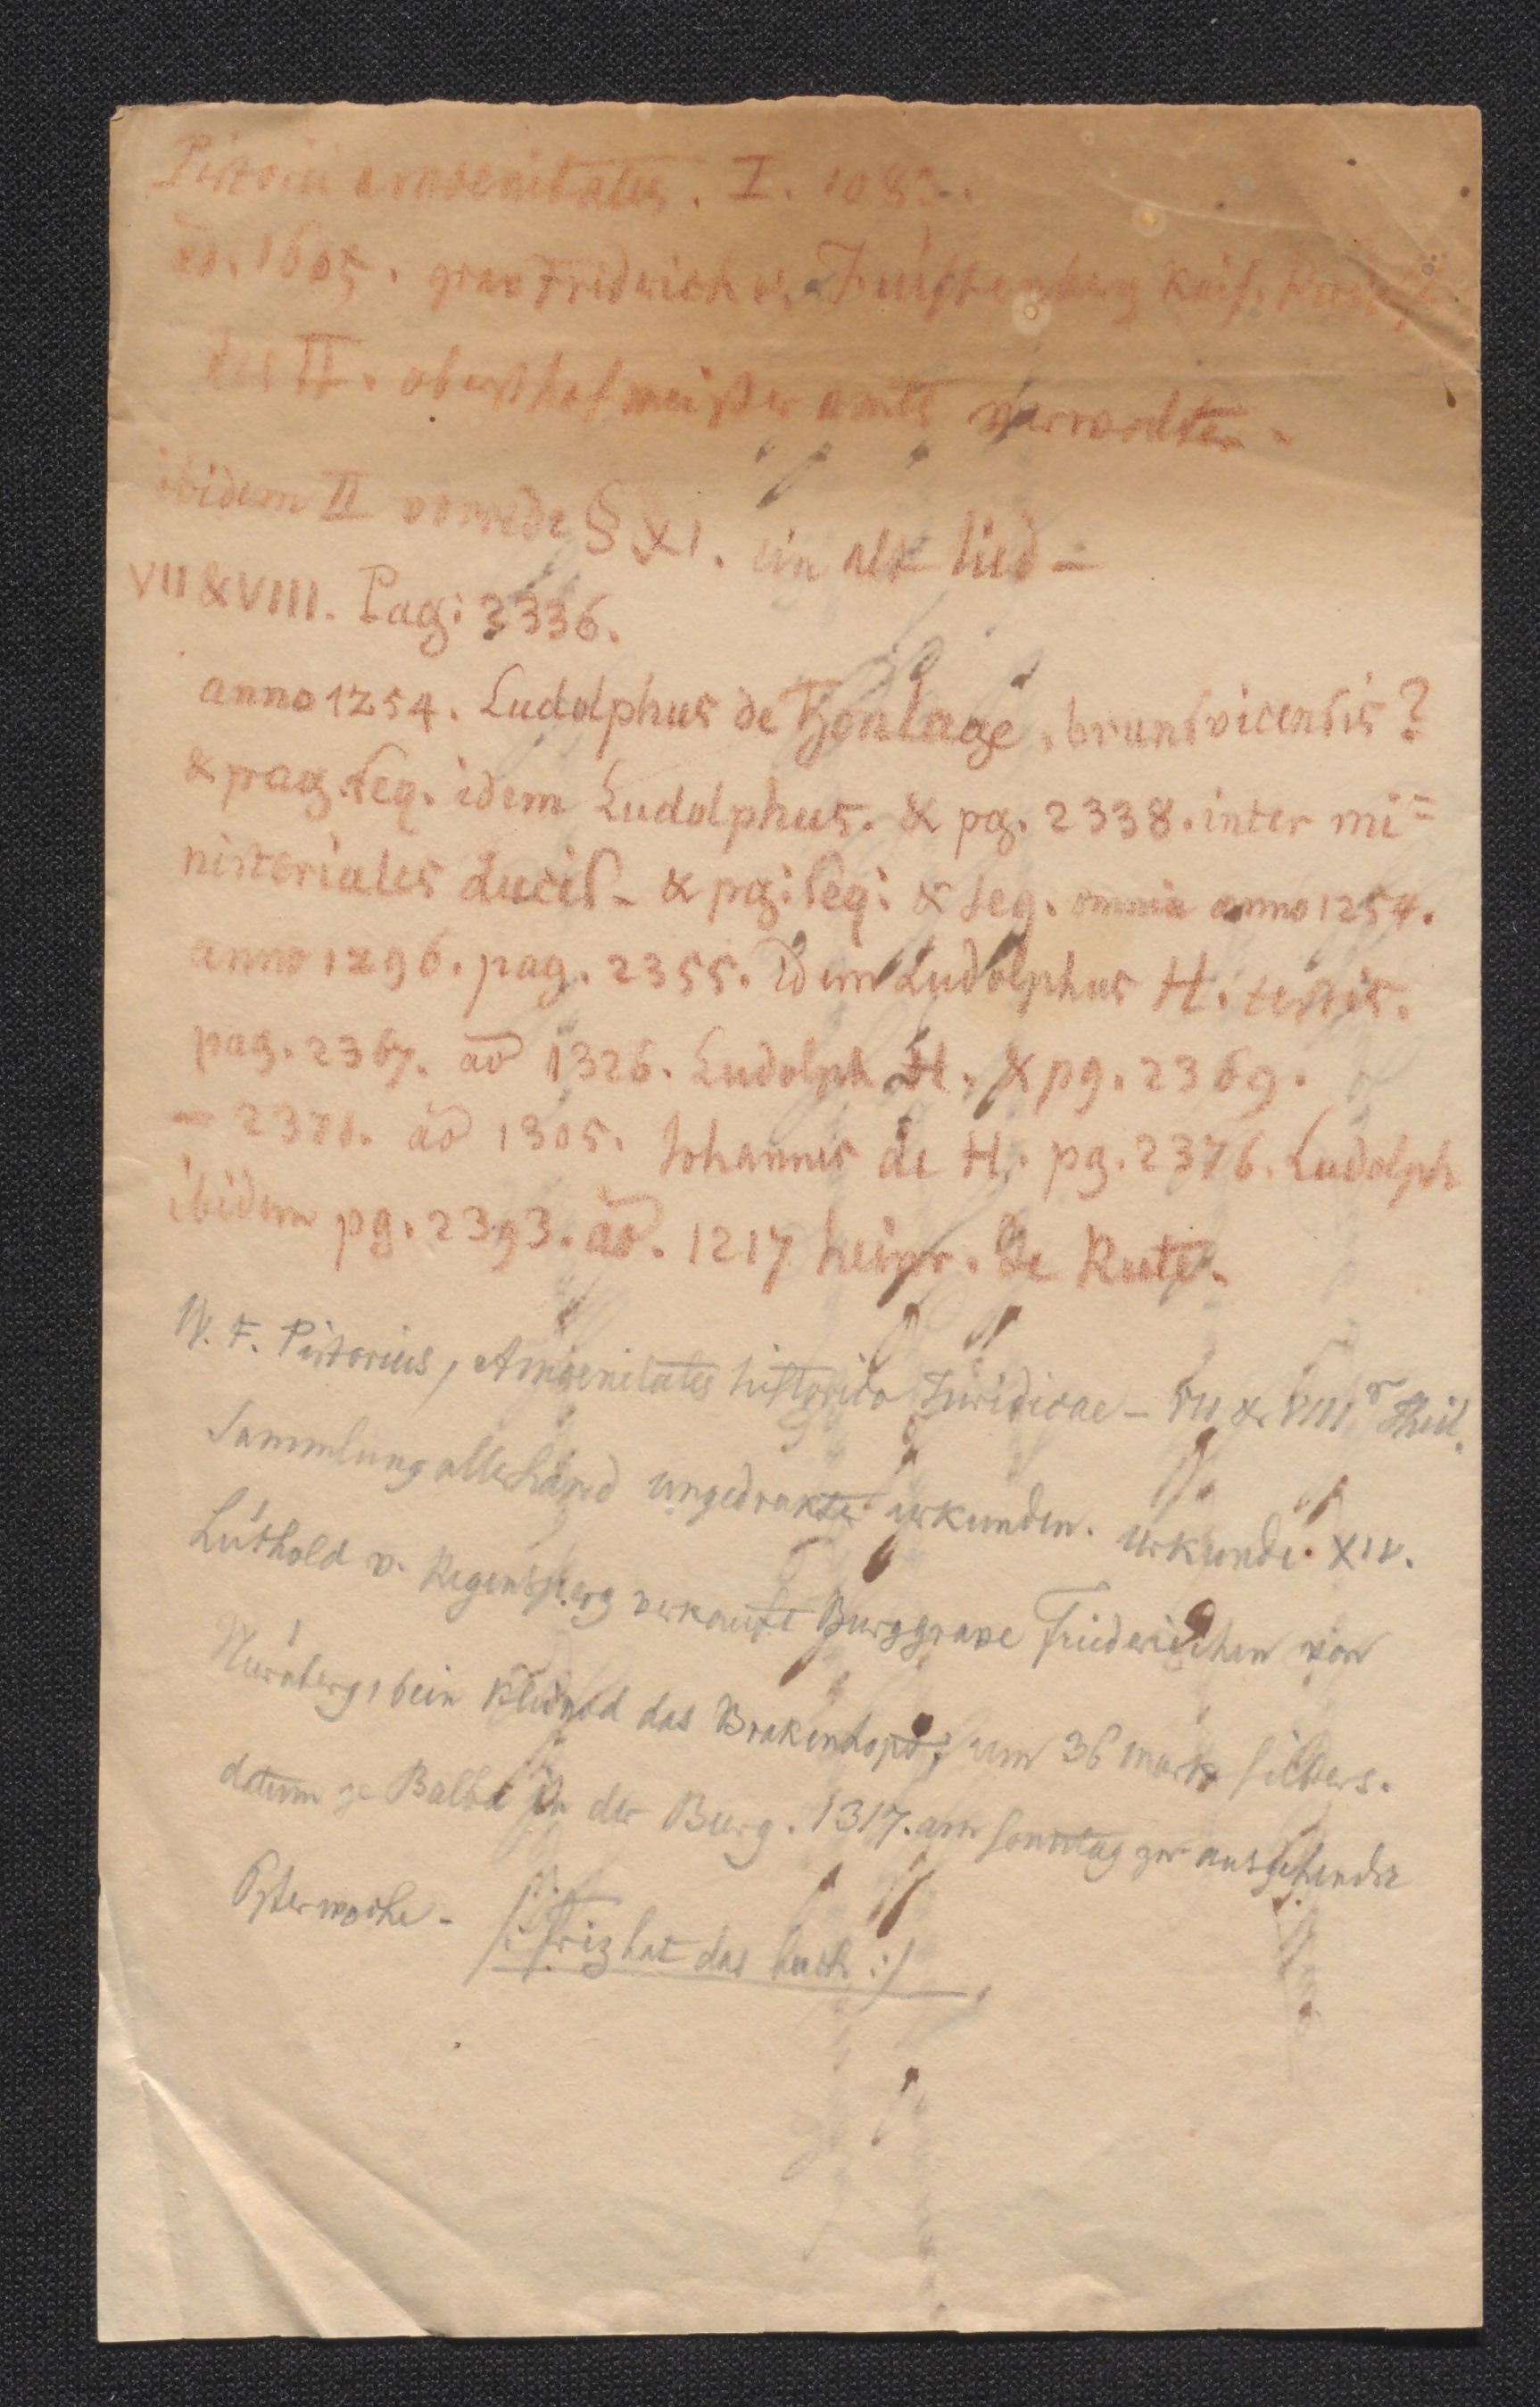 Pistorii amoenitates. I. 1083.
ao. 1605. grav Fridrich v. Fürstenberg Kais. Rudolf
des II. obersthofmeister amts verwalter.
ibidem II vorrede § XI. ein alt lied –
VII & VIII. Pag: 2336.
anno 1254. Ludolphus de Honlage, brunsvicensis?
& pag. seq. idem Ludolphus. & pg. 2338. inter mi=
nisteriales ducis – & pg: seq: & seq. omnia anno 1254.
anno 1296. pag. 2355. idem Ludolphus H. testis.
pag. 2367. ao 1326. Ludolph H. & pg. 2369.
– 2370. ao 1305. Johannes de H. pg. 2376. Ludolph
ibidem pg. 2393. ao. 1217 heinr. de Rute.
W. F. Pistorius, Amoenitates historico Juridicae – VII & VIIIr Theil.
Sammlung allerhand ungedrukter urkunden. urkunde XIV.
Lúthold v. Regensperg verkaufte Burggrave Friederichen von
Núrnberg, sein Kleinod das Brakenhopt, um 36 mark silbers.
datum ze Balbe in der Burg. 1317. am sonntag ze ausgehender
Osterwoche – /: Friz hat das buch :/